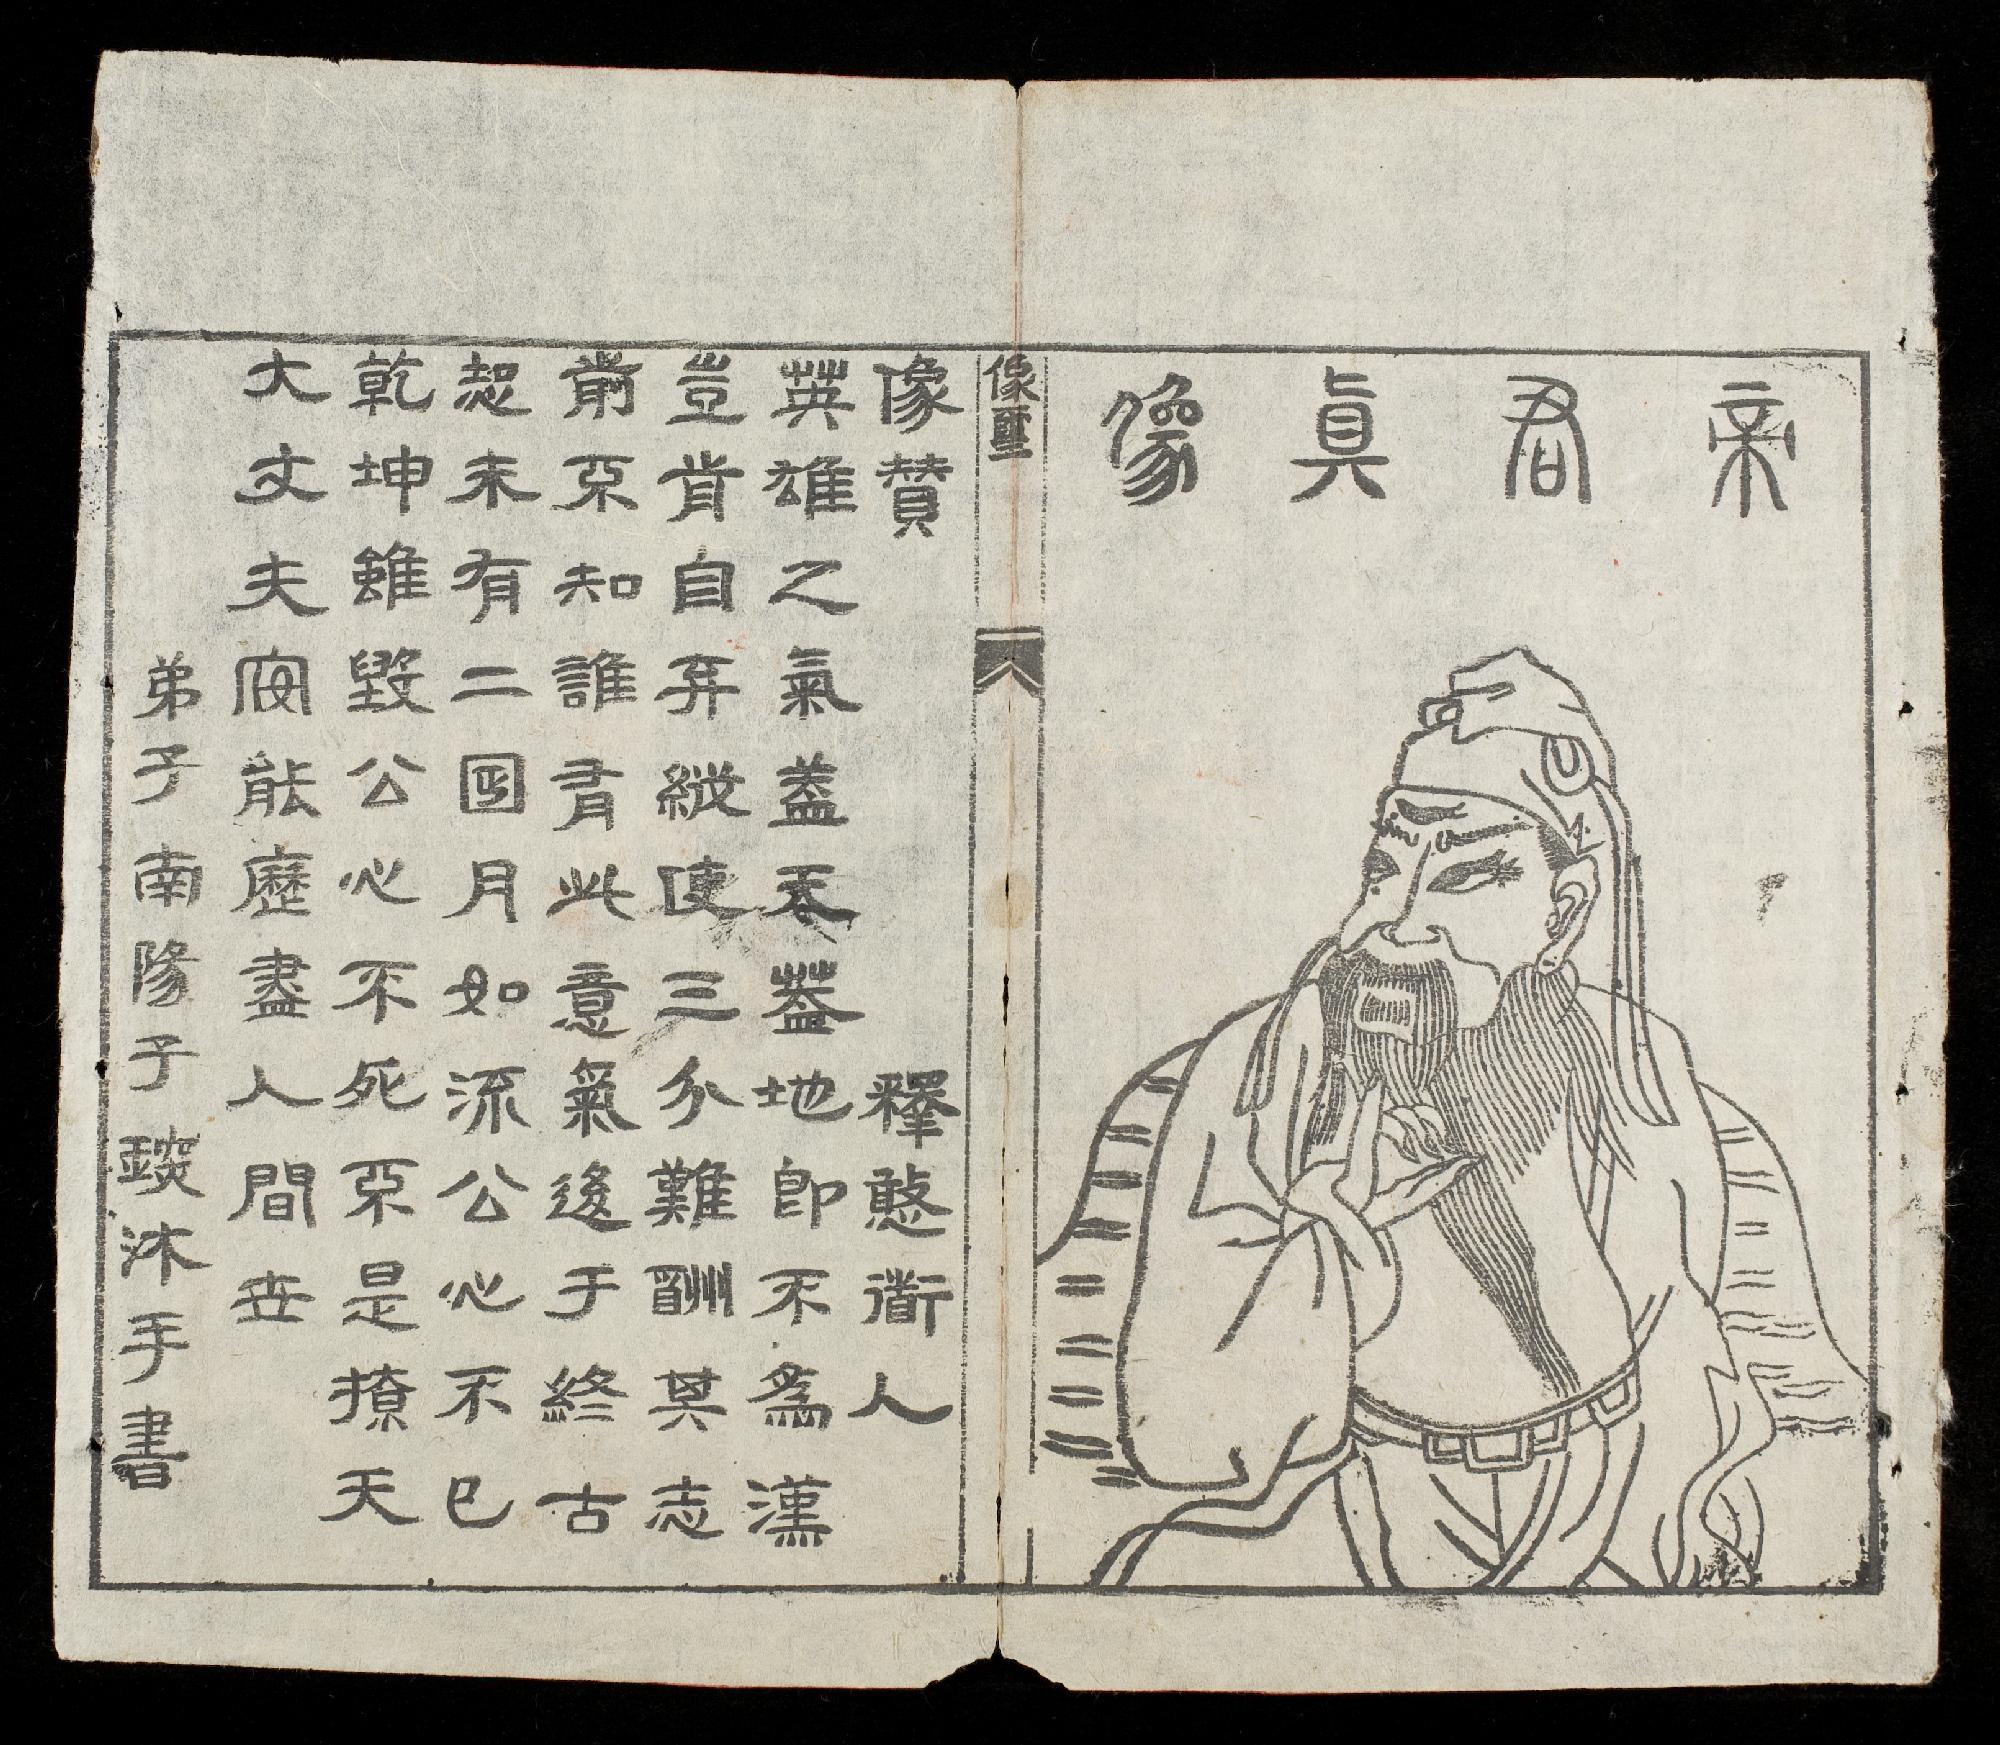 帝君眞像
像聖
像贊
釋憨衜人
英雄之氣蓋天蓋地即不為漢
豈肯自弃縱使三分難酬其志
前不知誰有此意氣後于終古
起未有二圓月如流公心不已
乾坤雖毀公心不死不是撩天
大丈夫安能歷盡人間世
弟子南陽子 沐手書